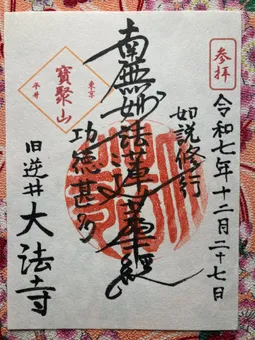 参拝
令和七年十二月二十七日
如説修行
南無妙法蓮華経
功徳甚多
東京
寳聚山
平井
旧逆井
大法寺